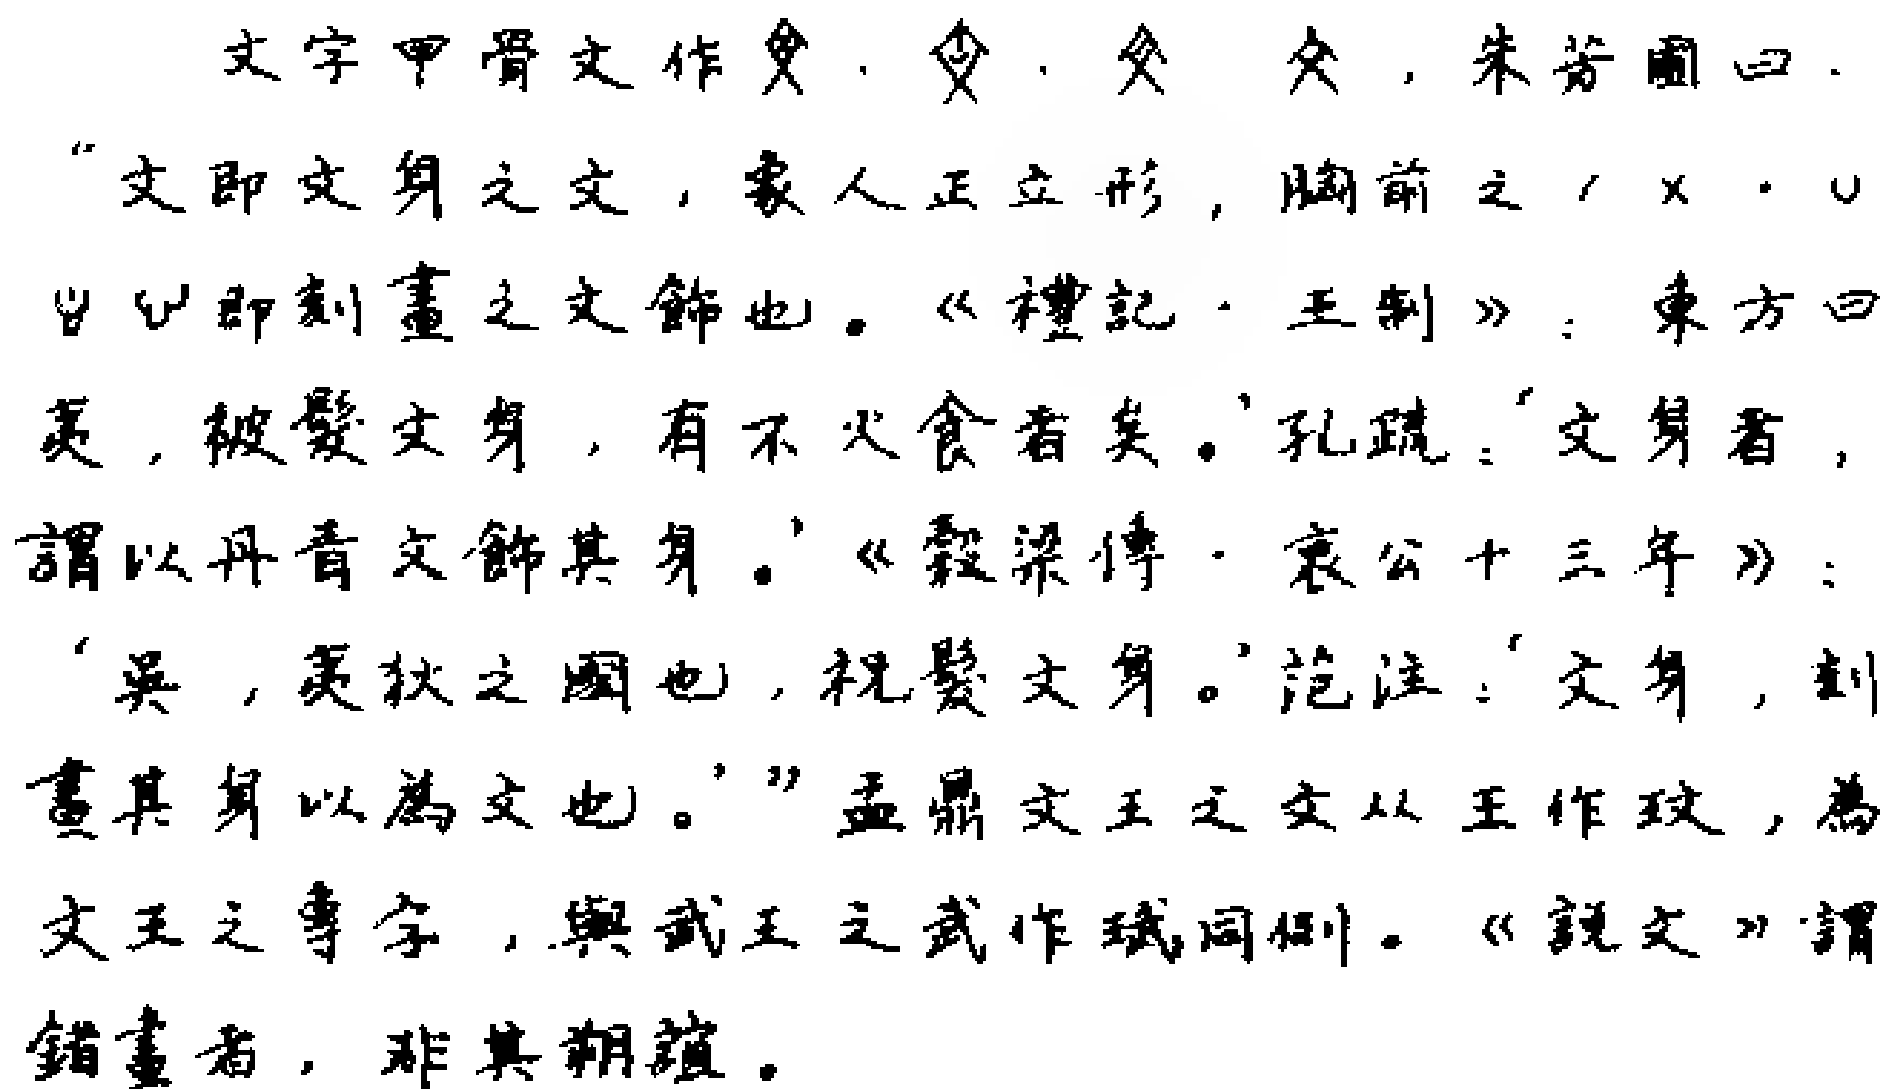 文字甲骨文作 . . ，朱芳圃曰.
“文即文身之文，象人正立形，胸前之/ X · ∪
即刻畫之文飾也。《禮記·王制》：東方曰
夷，被髮文身，有不火食者矣。’孔疏：‘文身者，
謂以丹青文飾其身。’《穀梁傳·哀公十三年》：
‘吳，夷狄之國也，祝髮文身。’范注：‘文身，刻
畫其身以為文也。’”盂鼎文王之文从王作玟，為
文王之專字，與武王之武作珷同例。《說文》謂
錯畫者，非其朔誼。